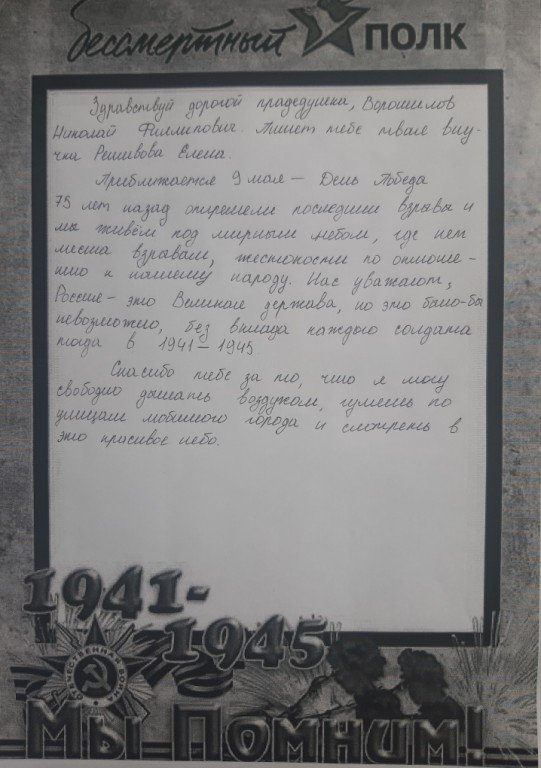 бессмертный ПОЛК
Здравствуй дорогой прадедушка, Ворошилов
Николай Филлипович. Пишет тебе твоя вну-
чка Решивова Елена.
Приближается 9 мая – День Победы
75 лет назад отгремели последнии взрывы и
мы живём под мирным небом, где нет
места взрывам, жестокости по отноше-
нию к нашему народу. Нас уважают,
Россия – это Великая держава, но это было-бы
невозможно, без вклада каждого солдата
тогда в 1941 – 1945.
Спасибо тебе за то, что я могу
свободно дышать воздухом, гулять по
улицам любимого города и смотреть в
это красивое небо.
1941-
1945
ОТЕЧЕСТВЕННАЯ ВОЙНА
Мы Помним!